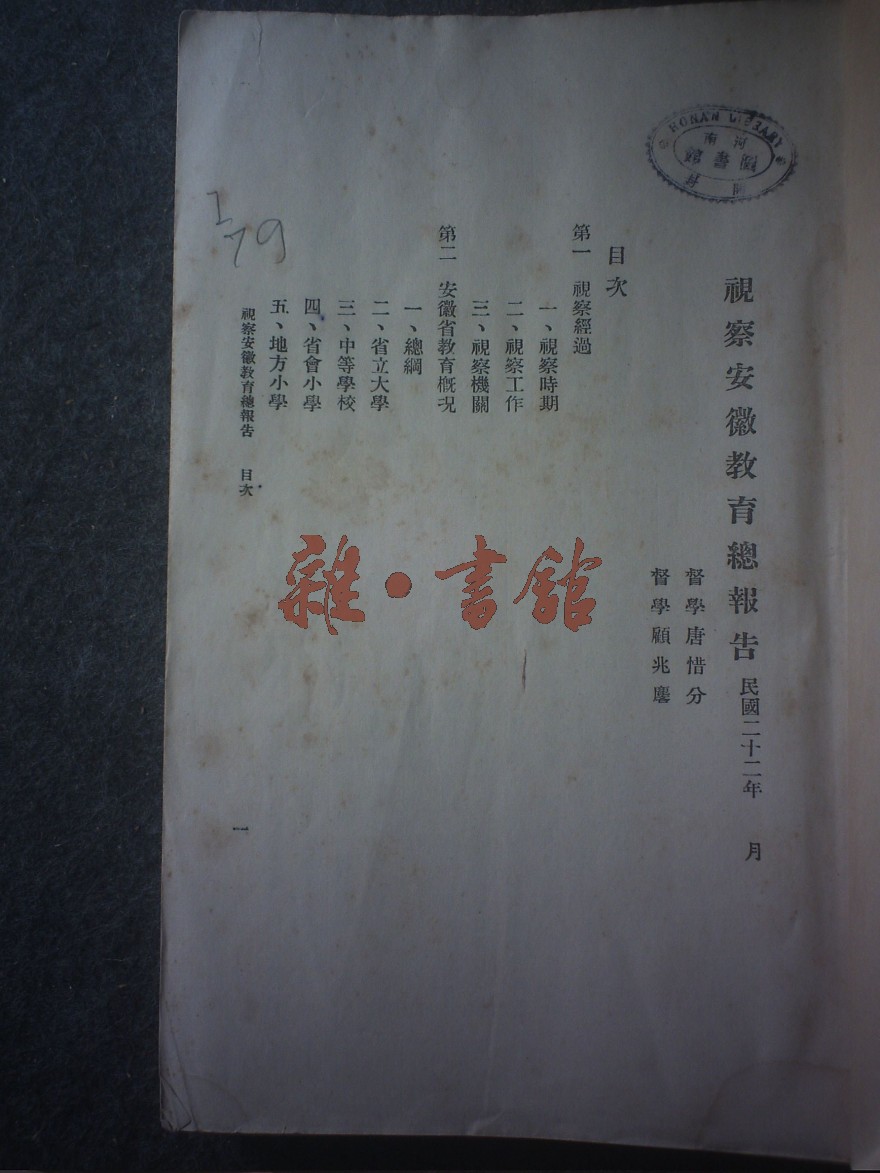 視察安徽教育總報告 民國二十二年 月
督學唐惜分
督學顧兆麐
目次
第一 視察經過
一、視察時期
二、視察工作
三、視察機關
第二 安徽省教育概况
一、總綱
二、省立大學
三、中等學校
四、省會小學
五、地方小學
視察安徽教育總報告 目次
一
HONAN LIBRARY
79
雜·書館